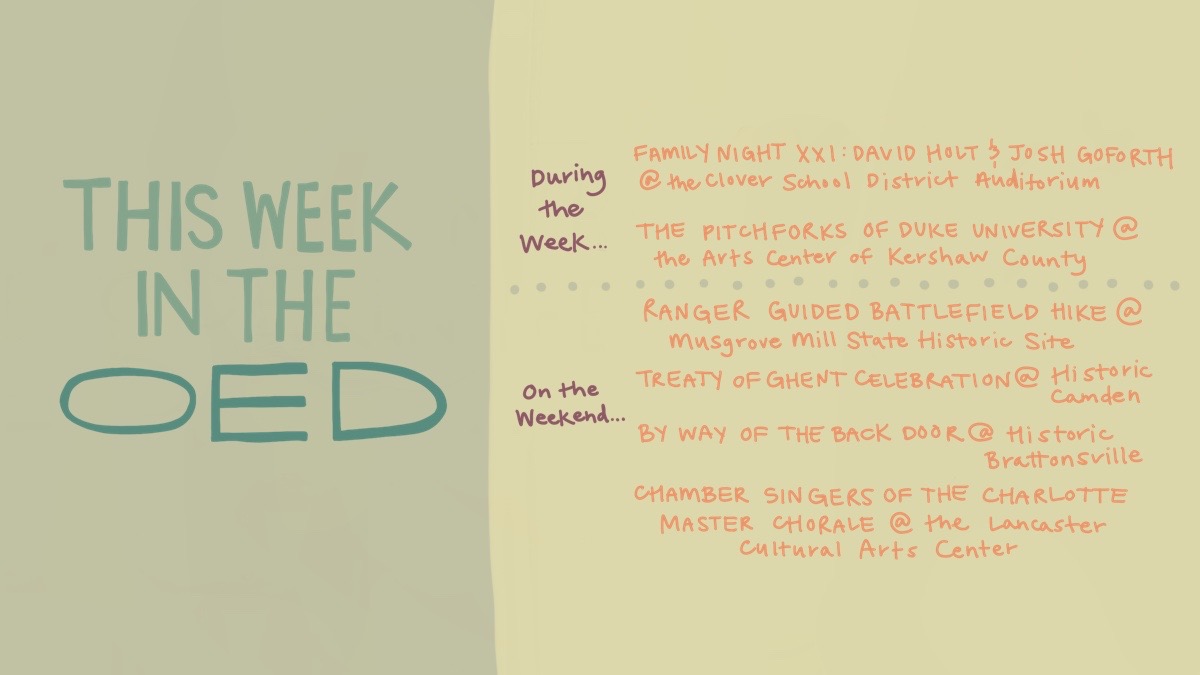 THIS WEEK
IN THE
OED
During
the
Week...
FAMILY NIGHT XXI: DAVID HOLT & JOSH GOFORTH
@ the Clover School District Auditorium
THE PITCHFORKS OF DUKE UNIVERSITY @
the Arts Center of Kershaw County
On the
Weekend...
RANGER GUIDED BATTLEFIELD HIKE @
Musgrove Mill State Historic Site
TREATY OF GHENT CELEBRATION @ Historic
Camden
BY WAY OF THE BACK DOOR @ Historic
Brattonsville
CHAMBER SINGERS OF THE CHARLOTTE
MASTER CHORALE @ the Lancaster
Cultural Arts Center